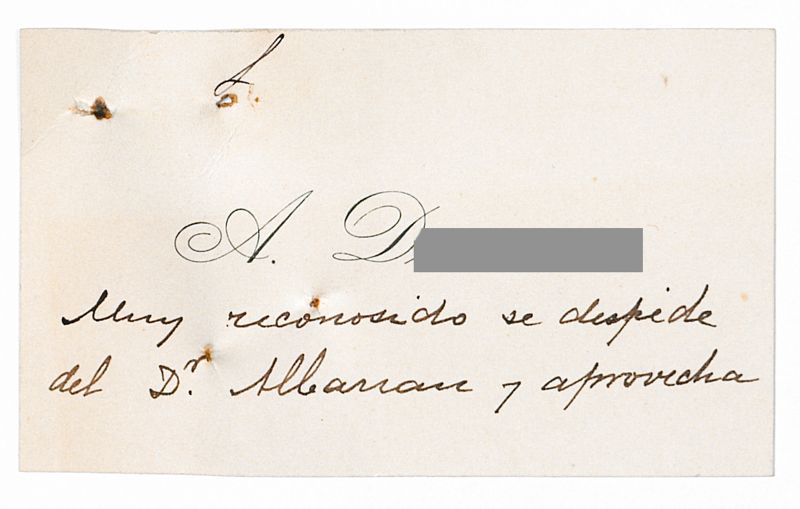 A. D
Muy reconosido se despide
del Dr. Albarran y aprovecha